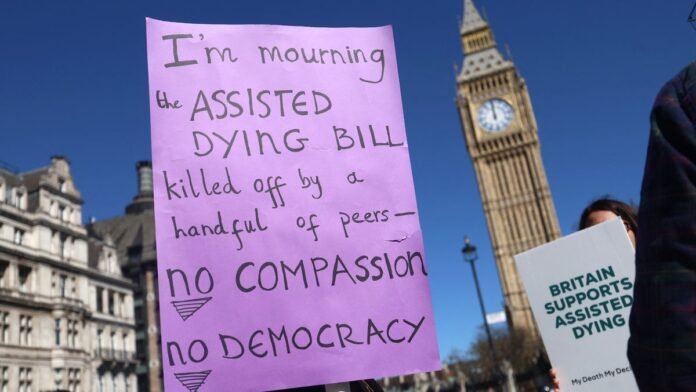 I'm mourning
the ASSISTED
DYING BILL
killed off by a
handful of peers—
no COMPASSION
no DEMOCRACY
BRITAIN
SUPPORTS
ASSISTED
DYING
My Death My